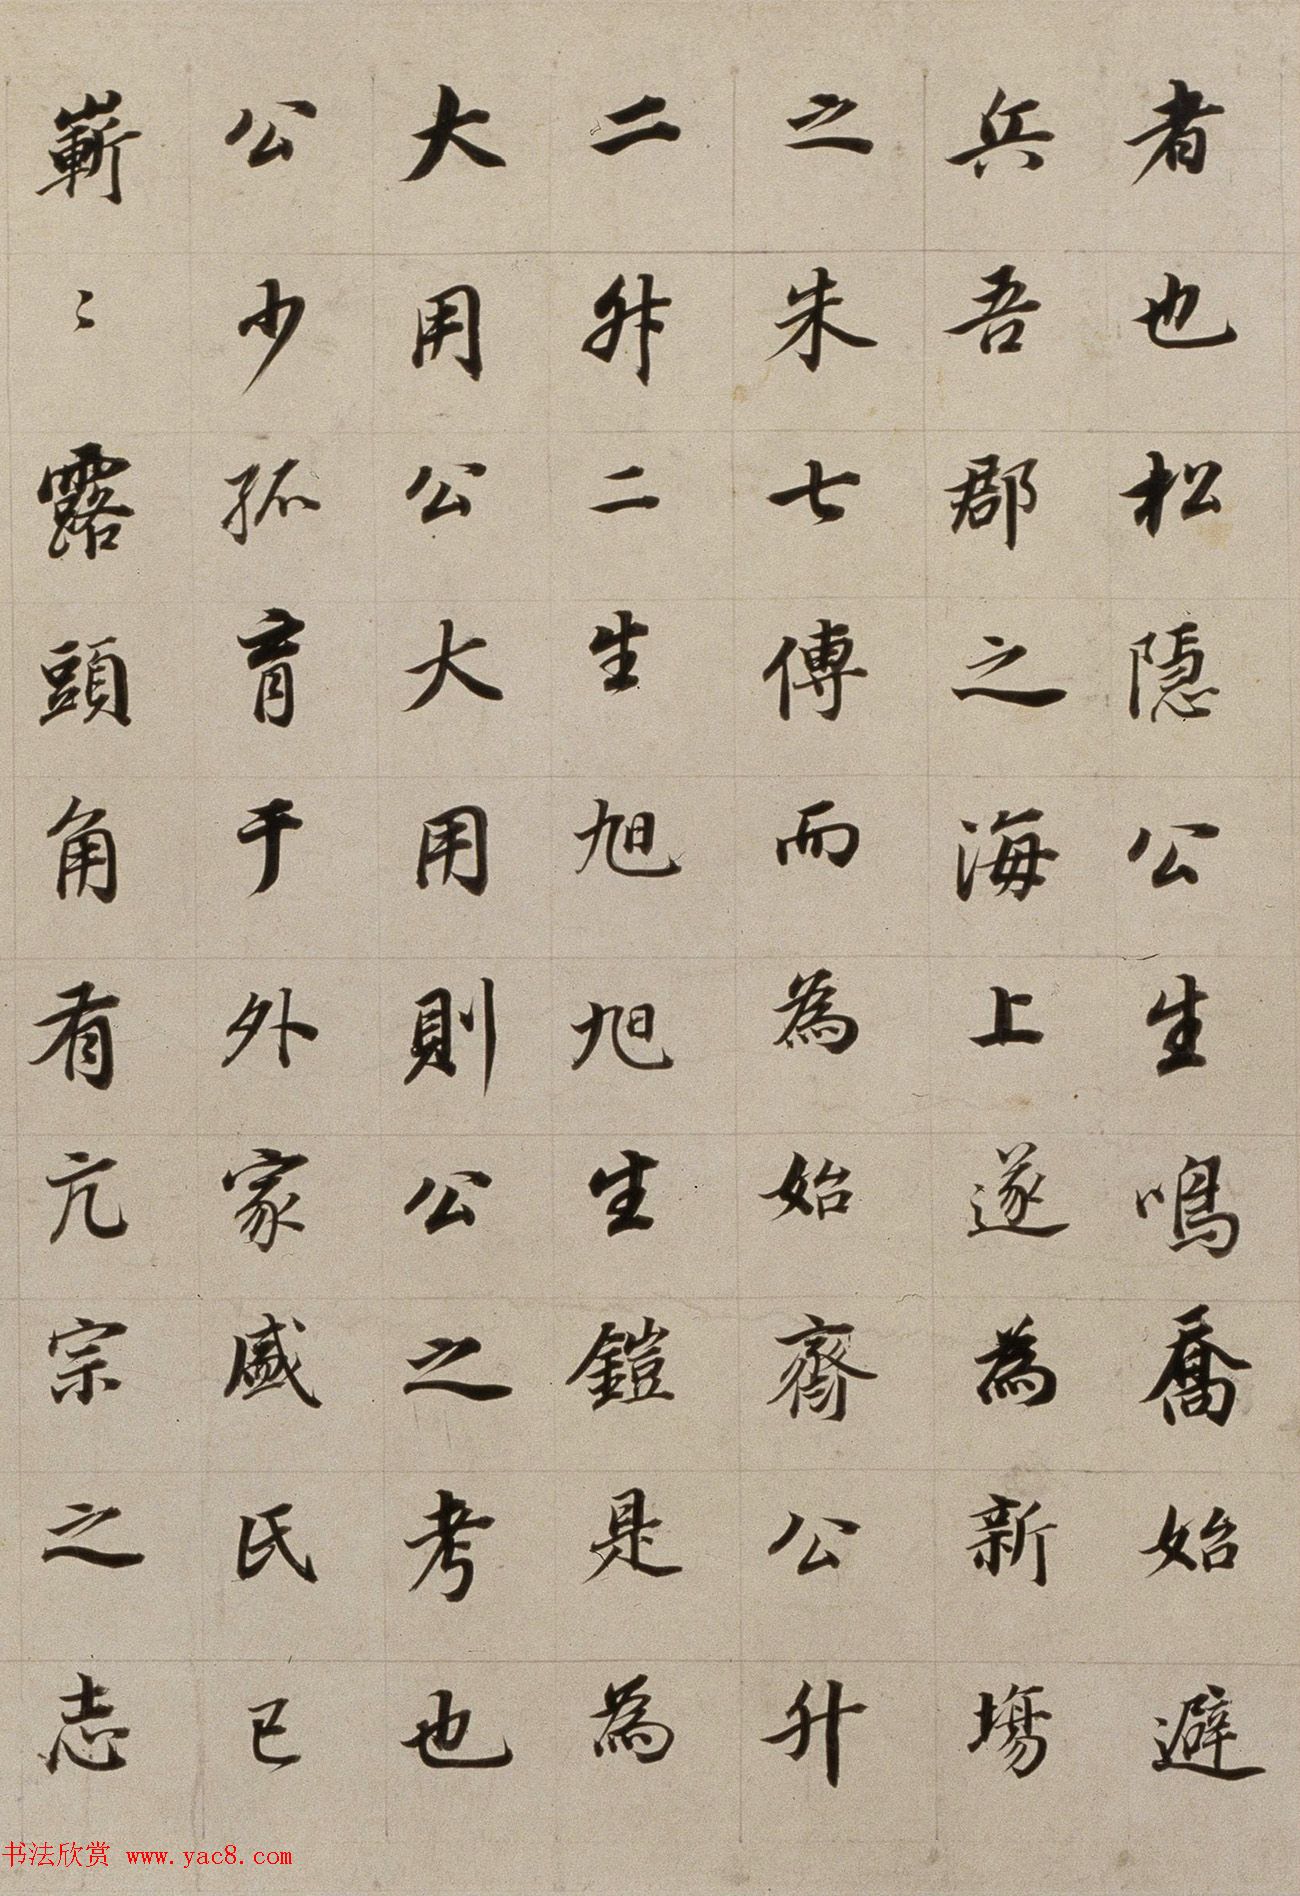 者也松隱公生鳴喬始避
兵吾郡之海上遂為新場
之朱七傳而為始齊公升
二升二生旭旭生鎧是為
大用公大用則公之考也
公少孤育于外家盛氏已
嶄〻露頭角有亢宗之志
书法欣赏 www.yac8.com